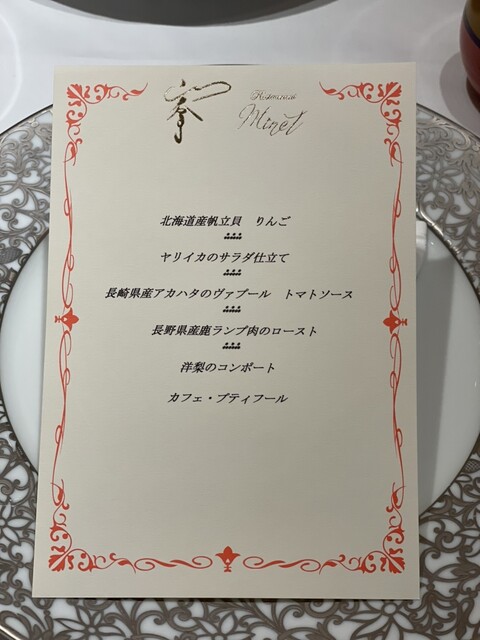 Minet
北海道産帆立貝 りんご
ヤリイカのサラダ仕立て
長崎県産アカハタのヴァプール トマトソース
長野県産鹿ランプ肉のロースト
洋梨のコンポート
カフェ・プティフール